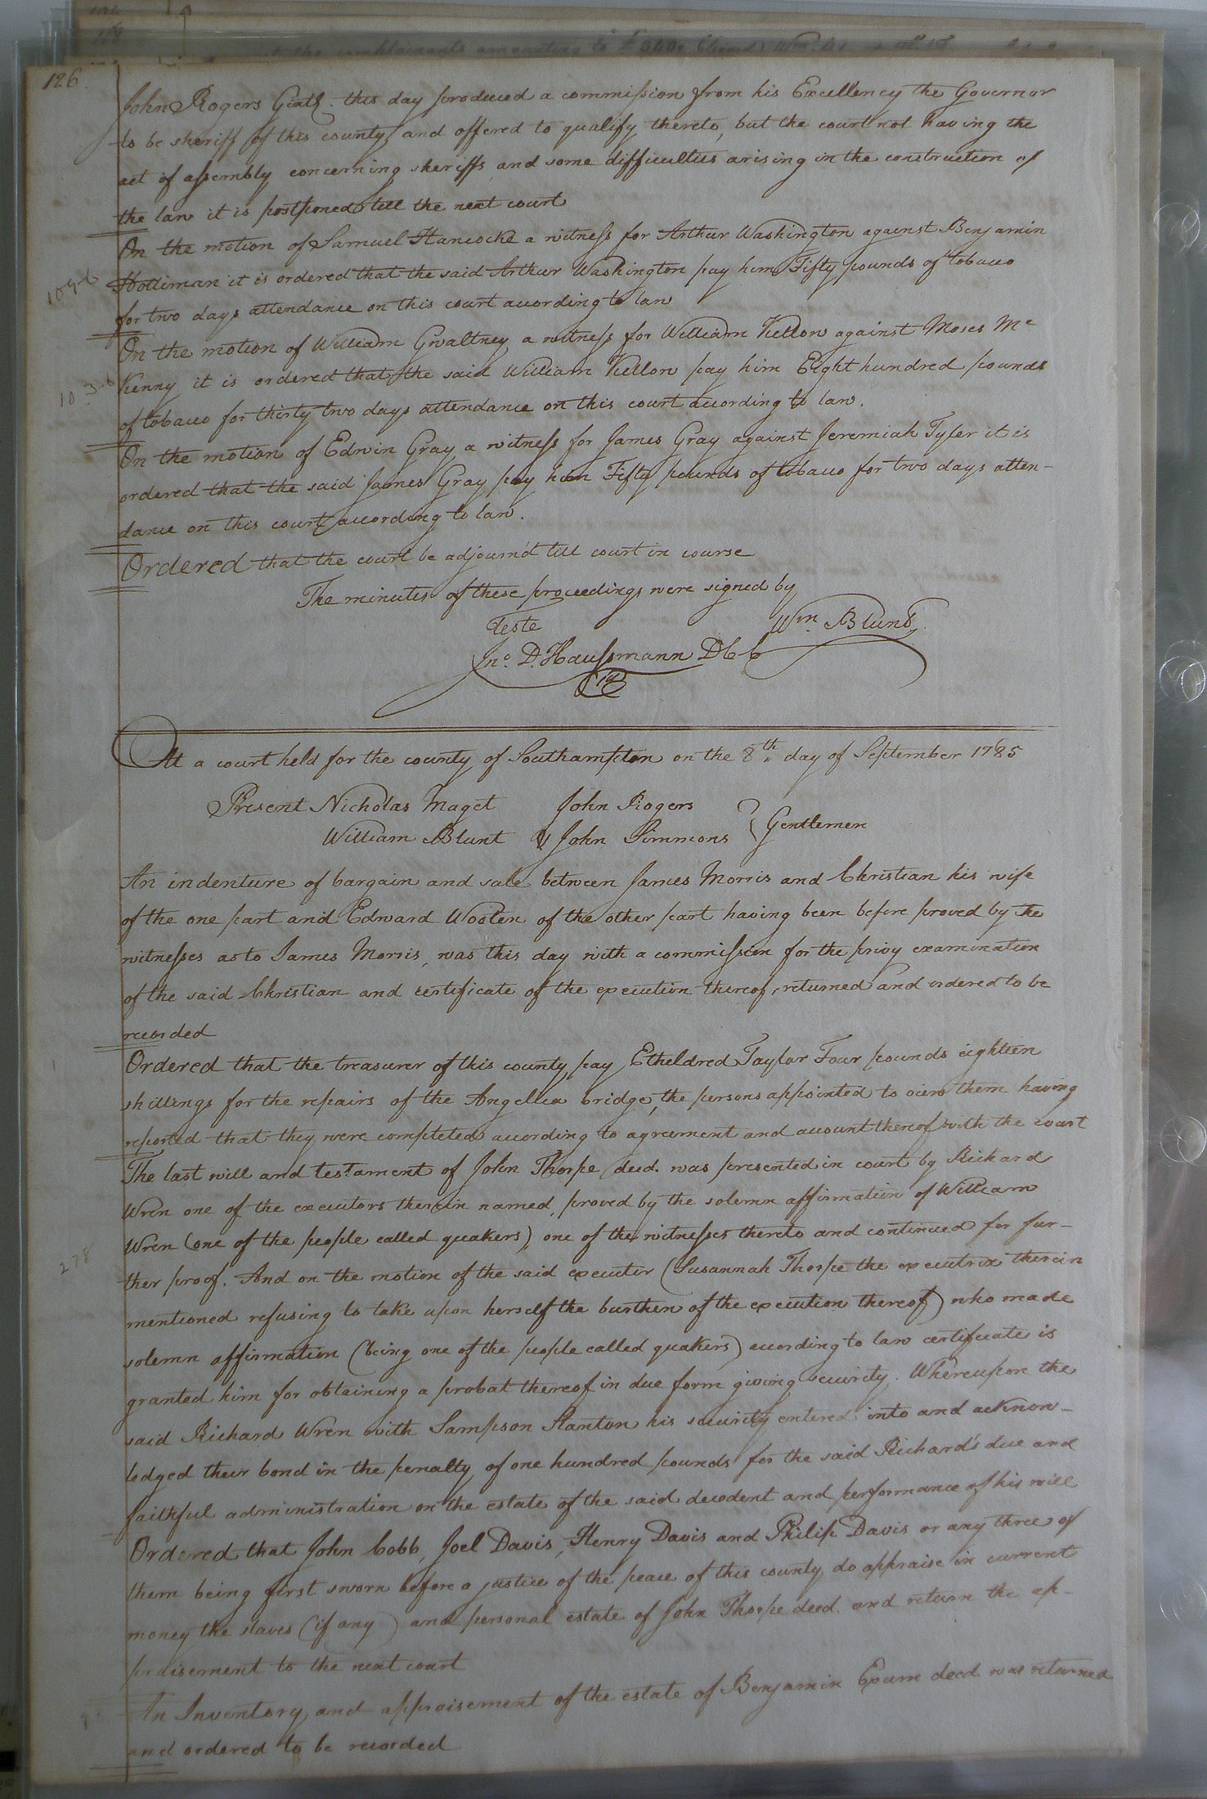 126
John Rogers Gentl. this day produced a commission from his Excellency the Governor
to be sheriff of this county and offered to qualify thereto, but the court not having the
act of assembly concerning sheriffs and some difficulties arising in the construction of
the law it is postponed till the next court
On the motion of Samuel Hancocke a witness for Arthur Washington against Benjamin
Holliman it is ordered that the said Arthur Washington pay him Fifty pounds of tobacco
for two days attendance on this court according to law
On the motion of William Gwaltney a witness for William Killow against Moses Mc
Kenny it is ordered that the said William Killow pay him Eight hundred pounds
of tobacco for thirty two days attendance on this court according to law.
On the motion of Edwin Gray a witness for James Gray against Jeremiah Tyler it is
ordered that the said James Gray pay him Fifty pounds of tobacco for two days atten-
dance on this court according to law.
Ordered that the court be adjourn'd till court in course
The minutes of these proceedings were signed by
Teste Wm Blunt
Jno. D. Haussmann DCC
At a court held for the county of Southampton on the 8th. day of September 1785
Present Nicholas Maget John Rogers
William Blunt & John Simmons } Gentlemen
An indenture of bargain and sale between James Morris and Christian his wife
of the one part and Edward Wooten of the other part having been before proved by the
witnesses as to James Morris, was this day with a commission for the privy examination
of the said Christian and certificate of the execution thereof, returned and ordered to be
recorded
Ordered that the treasurer of this county pay Etheldred Taylor Four pounds eighteen
shillings for the repairs of the Angelica bridge, the persons appointed to view them having
reported that they were completed according to agreement and account thereof with the court
The last will and testament of John Thorpe decd. was presented in court by Richard
Wren one of the executors therein named, proved by the solemn affirmation of William
Wren (one of the people called quakers), one of the witnesses thereto and continued for fur-
278
ther proof. And on the motion of the said executor (Susannah Thorpe the executrix therein
mentioned refusing to take upon herself the burthen of the execution thereof) who made
solemn affirmation (being one of the people called quakers) according to law certificate is
granted him for obtaining a probat thereof in due form giving security. Whereupon the
said Richard Wren with Sampson Stanton his security entered into and acknow-
ledged their bond in the penalty of one hundred pounds for the said Richard's due and
faithful administration on the estate of the said decedent and performance of his will
Ordered that John Cobb, Joel Davis, Henry Davis and Philip Davis or any three of
them being first sworn before a justice of the peace of this county, do appraise in current
money the slaves (if any) and personal estate of John Thorpe decd. and return the ap-
praisement to the next court
An Inventory and appraisement of the estate of Benjamin Exum decd was returned
and ordered to be recorded